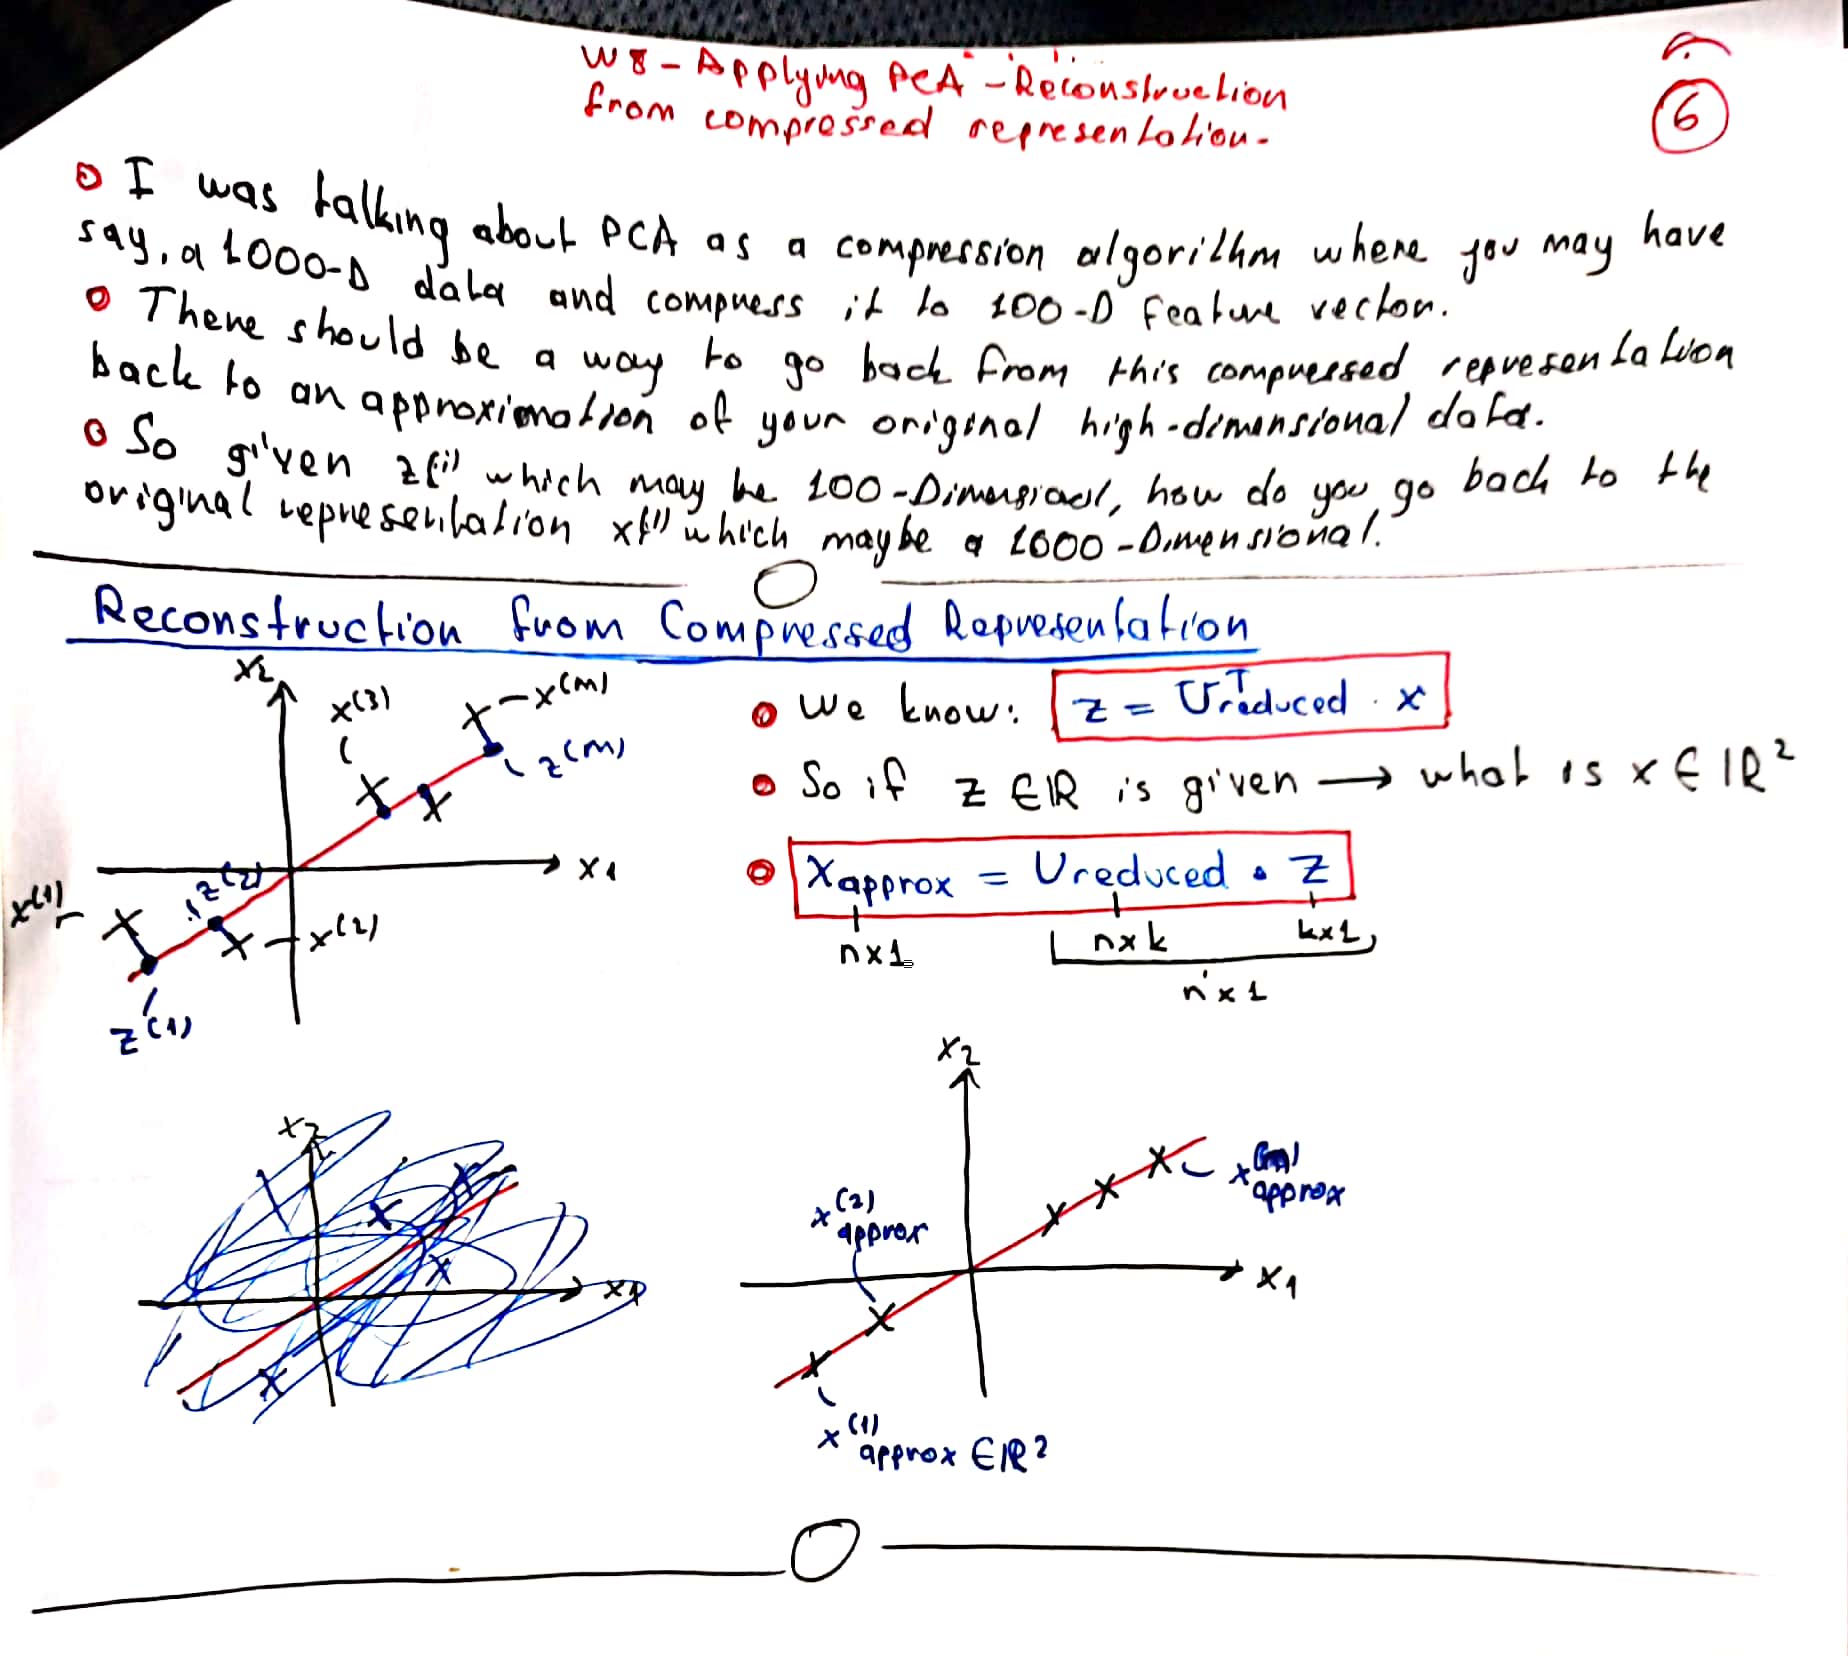 W8 - Applying PCA - Reconstruction
from compressed representation.
6
I was talking about PCA as a compression algorithm where you may have
say, a 1000-D data and compress it to 100-D feature vector.
There should be a way to go back from this compressed representation
back to an approximation of your original high-dimensional data.
So given z(i) which may be 100-Dimensional, how do you go back to the
original representation x(i) which maybe a 1000-Dimensional.
Reconstruction from Compressed Representation
x2
x(3)
x(m)
z(m)
x1
z(2)
x(1)
x(2)
z(1)
We know: z = Uᵀreduced . x
So if z ∈ ℝ is given → what is x ∈ ℝ²
Xapprox = Ureduced . z
n×1
n×k
k×1
n×1
x2
x1
x2
x(m)approx
x(2)approx
x1
x(1)approx ∈ ℝ²